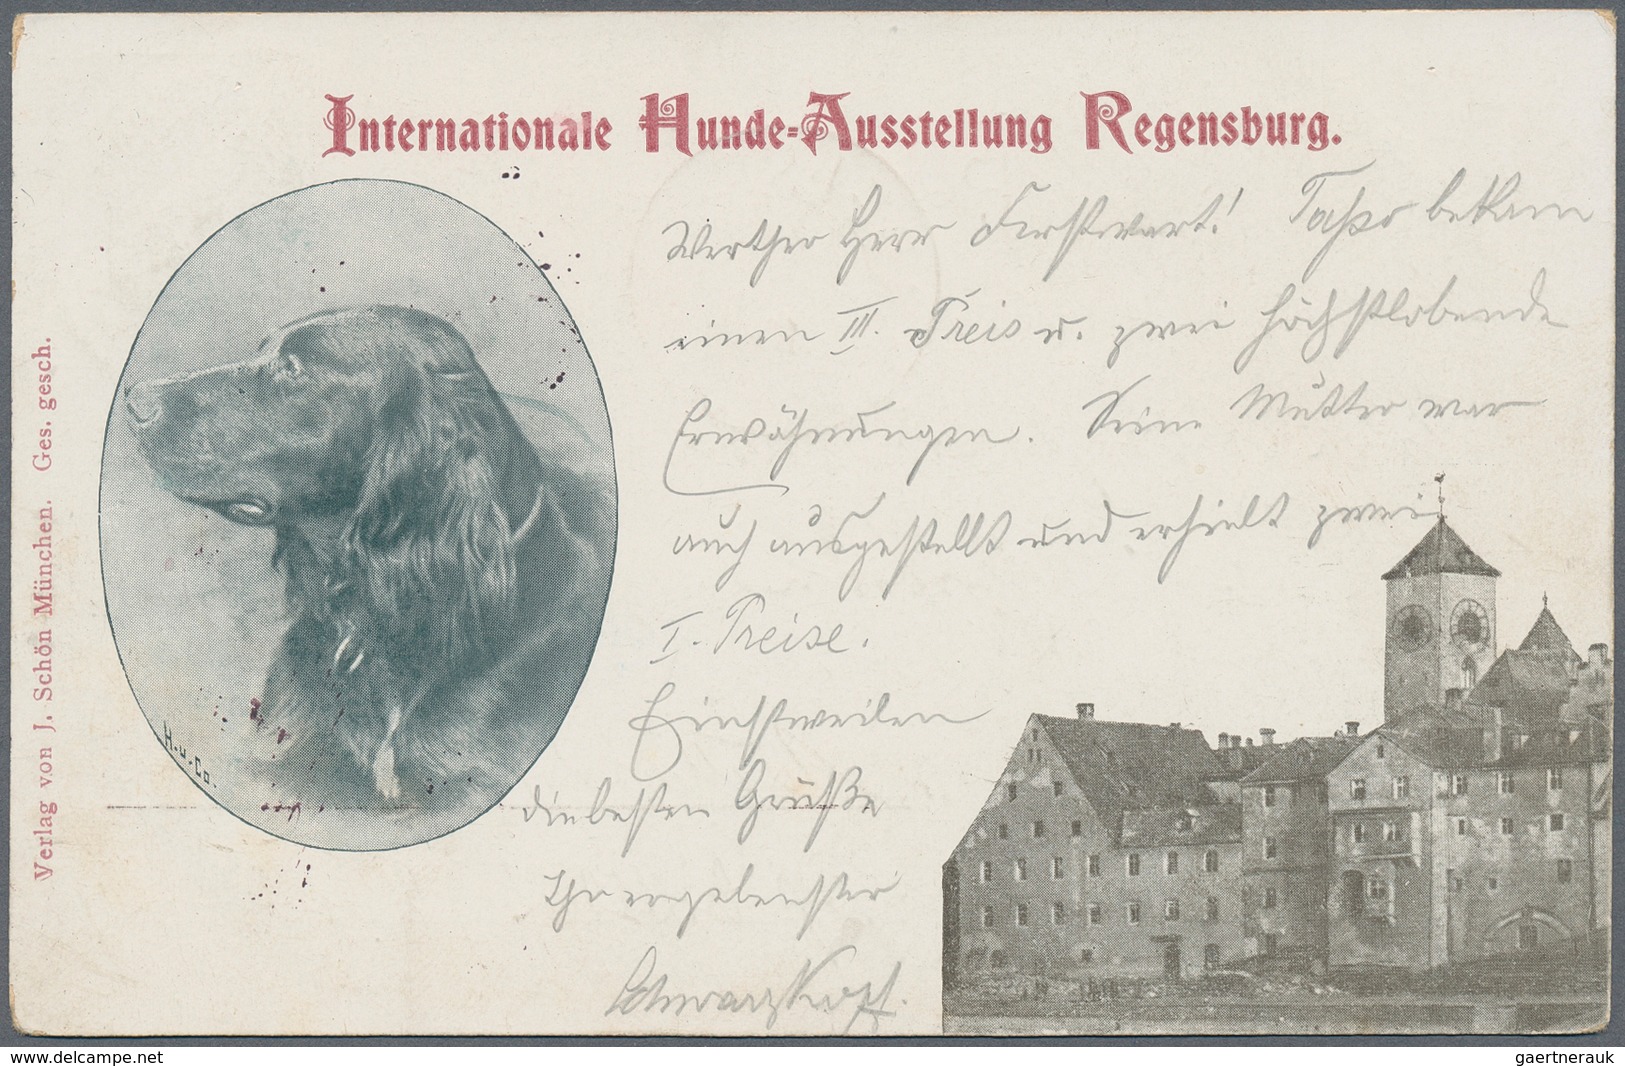 Internationale Hunde=Ausstellung Regensburg.
Werther Herr Forstwart! bekam
einen III. Preis u. zwei höchstlobende
Erwähnungen. Seine Mutter war
auch ausgestellt und erhielt zwei
I. Preise.
Einstweilen
die besten Grüße
Ihr ergebenster
Schwarzkopf.
H.u.Co.
Verlag von J. Schön München. Ges. gesch.
www.delcampe.net
gaertnerauk